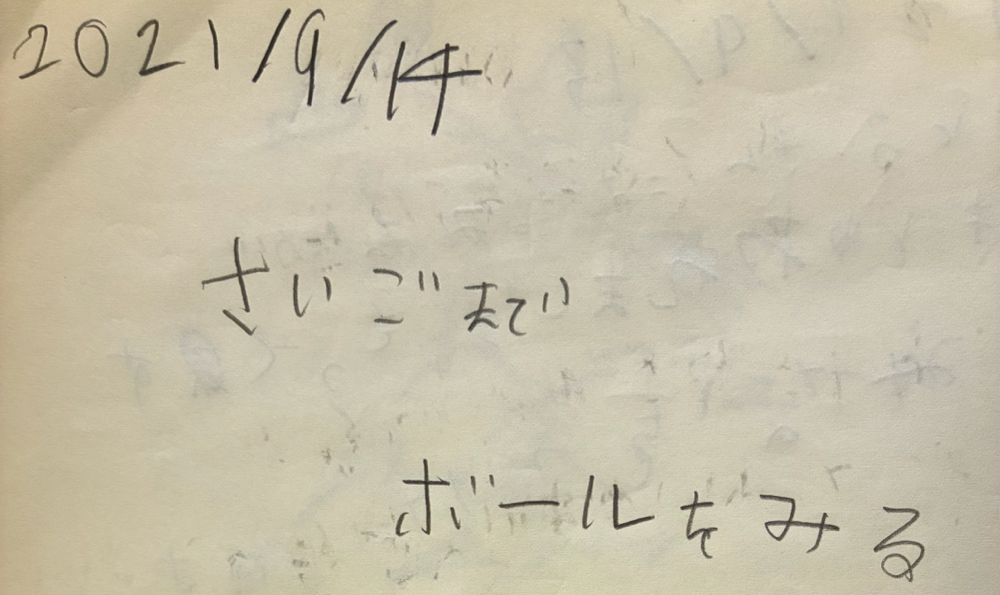 2021/9/14
さいごまで
ボールをみる